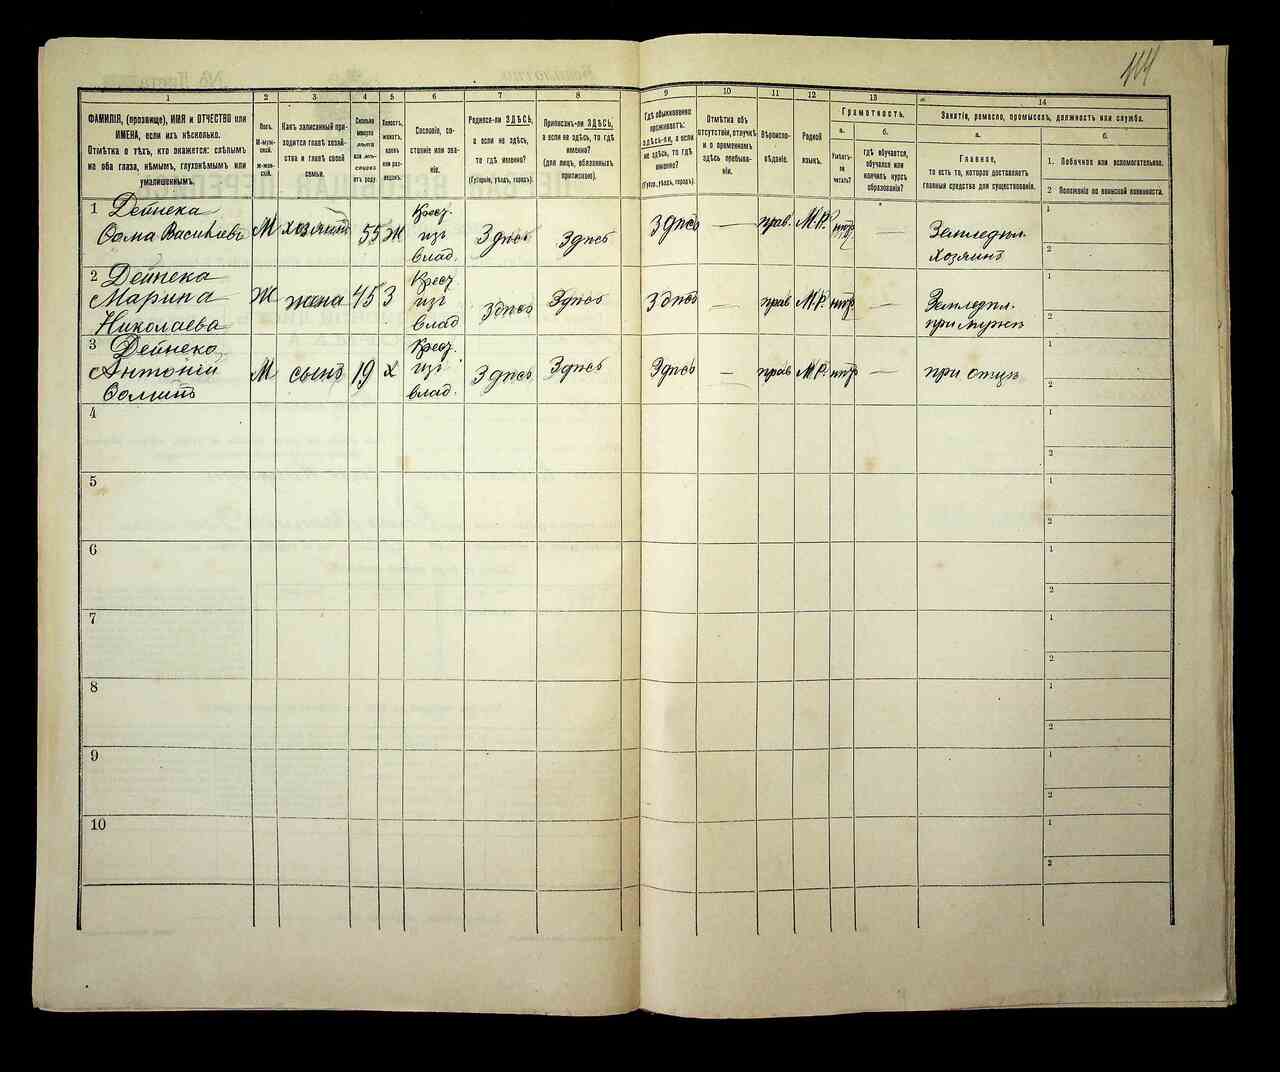 414
1
2
3
4
5
6
7
8
9
10
11
12
13
14
ФАМИЛІЯ, (прозвище), ИМЯ и ОТЧЕСТВО или
ИМЕНА, если ихъ нѣсколько.
Отмѣтка о тѣхъ, кто окажется: слѣпымъ
на оба глаза, нѣмымъ, глухонѣмымъ или
умалишеннымъ.
Полъ.
М-муж-
ской.
ж-жен-
скій.
Какъ записанный при-
ходится главѣ хозяй-
ства и главѣ своей
семьи.
Сколько
минуло
лѣтъ
или мѣ-
сяцевъ
отъ роду
Холостъ,
женатъ,
вдовъ
или раз-
веденъ.
Сословіе, со-
стояніе или зва-
ніе.
Родился-ли ЗДѢСЬ,
а если не здѣсь,
то гдѣ именно?
(Губернія, уѣздъ, городъ).
Приписанъ-ли ЗДѢСЬ,
а если не здѣсь, то гдѣ
именно?
(для лицъ, обязанныхъ
припискою).
Гдѣ обыкновенно
проживаетъ:
здѣсь-ли, а если
не здѣсь, то гдѣ
именно?
(Губерн., уѣздъ, городъ).
Отмѣтка объ
отсутствіи, отлучкѣ
и о временномъ
здѣсь пребыва-
ніи.
Вѣроиспо-
вѣданіе.
Родной
языкъ.
Грамотность.
а.
Умѣетъ-
ли
читать?
б.
гдѣ обучается,
обучался или
кончилъ курсъ
образованія?
Занятіе, ремесло, промыселъ, должность или служба.
а.
Главное,
то есть то, которое доставляетъ
главныя средства для существованія.
б.
1. Побочное или вспомогательное.
2 Положеніе по воинской повинности.
1 Дейнека
Ѳома Васильевъ М хозяинъ 55 ж Крест. изъ влад. Здѣсь Здѣсь Здѣсь — прав. М.Р. нѣтъ — Земледѣл. хозяинъ
1
2
2 Дейнека
Марина
Николаева Ж жена 45 З Крест. изъ влад Здѣсь Здѣсь Здѣсь — прав М.Р. нѣтъ — Земледѣл. при мужѣ
1
2
3 Дейнека
Антоній
Ѳоминъ М сынъ 19 х Крест. изъ влад. Здѣсь Здѣсь Здѣсь — прав М.Р. нѣтъ — при отцѣ
1
2
4
1
2
5
1
2
6
1
2
7
1
2
8
1
2
9
1
2
10
1
2